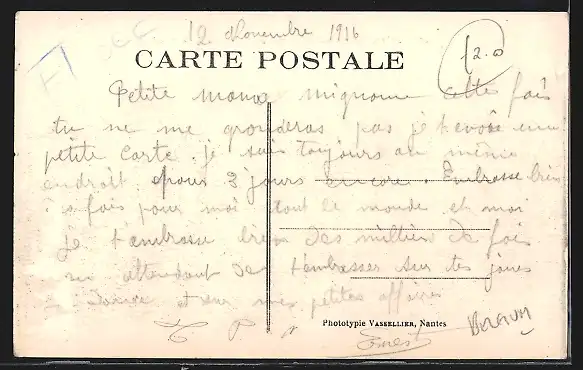 12 Novembre 1916
CARTE POSTALE
12.0
Petite mignonne cette fois
tu ne me gronderas pas je t'envoie une
petite carte. je suis toujours au même
endroit pour 3 jours encore. Embrasse bien
fois pour moi tout le monde et moi
je t'embrasse bien des milliers de fois
en attendant de t'embrasser sur tes joues
et sur mes petites affaires
Phototypie VASSELLIER, Nantes
Ernest